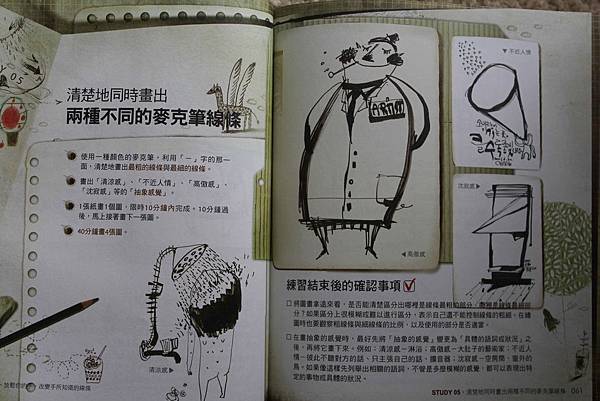 清楚地同時畫出
兩種不同的麥克筆線條
使用一種顏色的麥克筆,利用「一」字的那一
面,清楚地畫出最粗的線條與最細的線條。
畫出「清涼感」、「不近人情」、「高傲感」、
「沈寂感」等的「抽象感覺」。
1張紙畫1個圖,限時10分鐘內完成。10分鐘過
後,馬上接著畫下一張圖。
40分鐘畫4張圖。
清涼感▶
改變手所知道的線條
◀高傲感
▼不近人情
沈寂感▶
練習結束後的確認事項
□將圖畫拿遠來看,是否能清楚區分出哪裡是線條最粗的部分,哪裡是線條最細部
分?如果區分上很模糊或難以進行區分,表示自己還不能控制線條的粗細。在繪
圖時也要觀察粗線條與細線條的比例,以及使用的部分是否適當。
□在畫抽象的感覺時,最好先將「抽象的感覺」變更為「具體的話詞或狀況」之
後,再將它畫下來。例如:清涼感—淋浴、高傲感—大肚子的藝術家、不近人
情—彼此不聽對方的話,只主張自己的話、擴音器、沈寂感—空房間、窗外的
鳥。如果像這樣先列舉出相關的話詞,不管是多麼模糊的感覺,都可以表現出特
定的事物或具體的狀況。
STUDY 05、清楚地同時畫出兩種不同的麥克筆線條 061